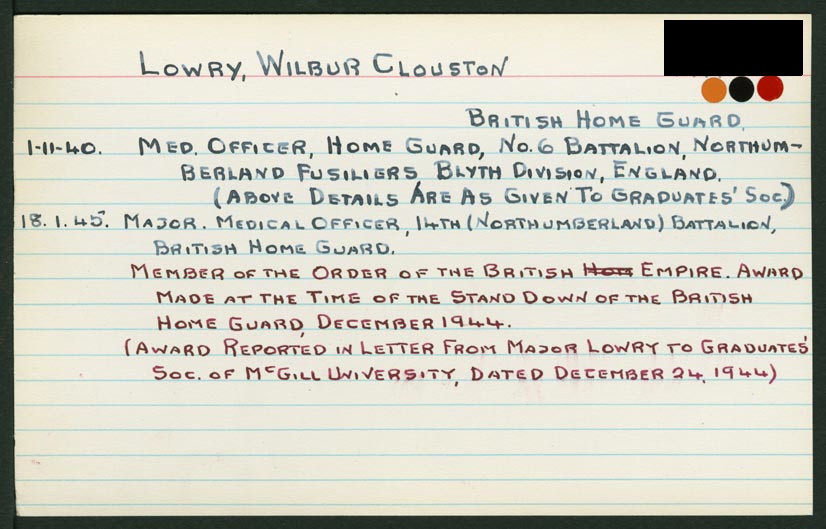 LOWRY, WILBUR CLOUSTON
BRITISH HOME GUARD.
1-11-40. MED. OFFICER, HOME GUARD, NO. 6 BATTALION, NORTHUM-
BERLAND FUSILIERS BLYTH DIVISION, ENGLAND.
(ABOVE DETAILS ARE AS GIVEN TO GRADUATES' SOC.)
18.1.45. MAJOR. MEDICAL OFFICER, 14TH (NORTHUMBERLAND) BATTALION,
BRITISH HOME GUARD.
MEMBER OF THE ORDER OF THE BRITISH EMPIRE. AWARD
MADE AT THE TIME OF THE STAND DOWN OF THE BRITISH
HOME GUARD, DECEMBER 1944.
(AWARD REPORTED IN LETTER FROM MAJOR LOWRY TO GRADUATES'
SOC. OF MCGILL UNIVERSITY, DATED DECEMBER 24, 1944)